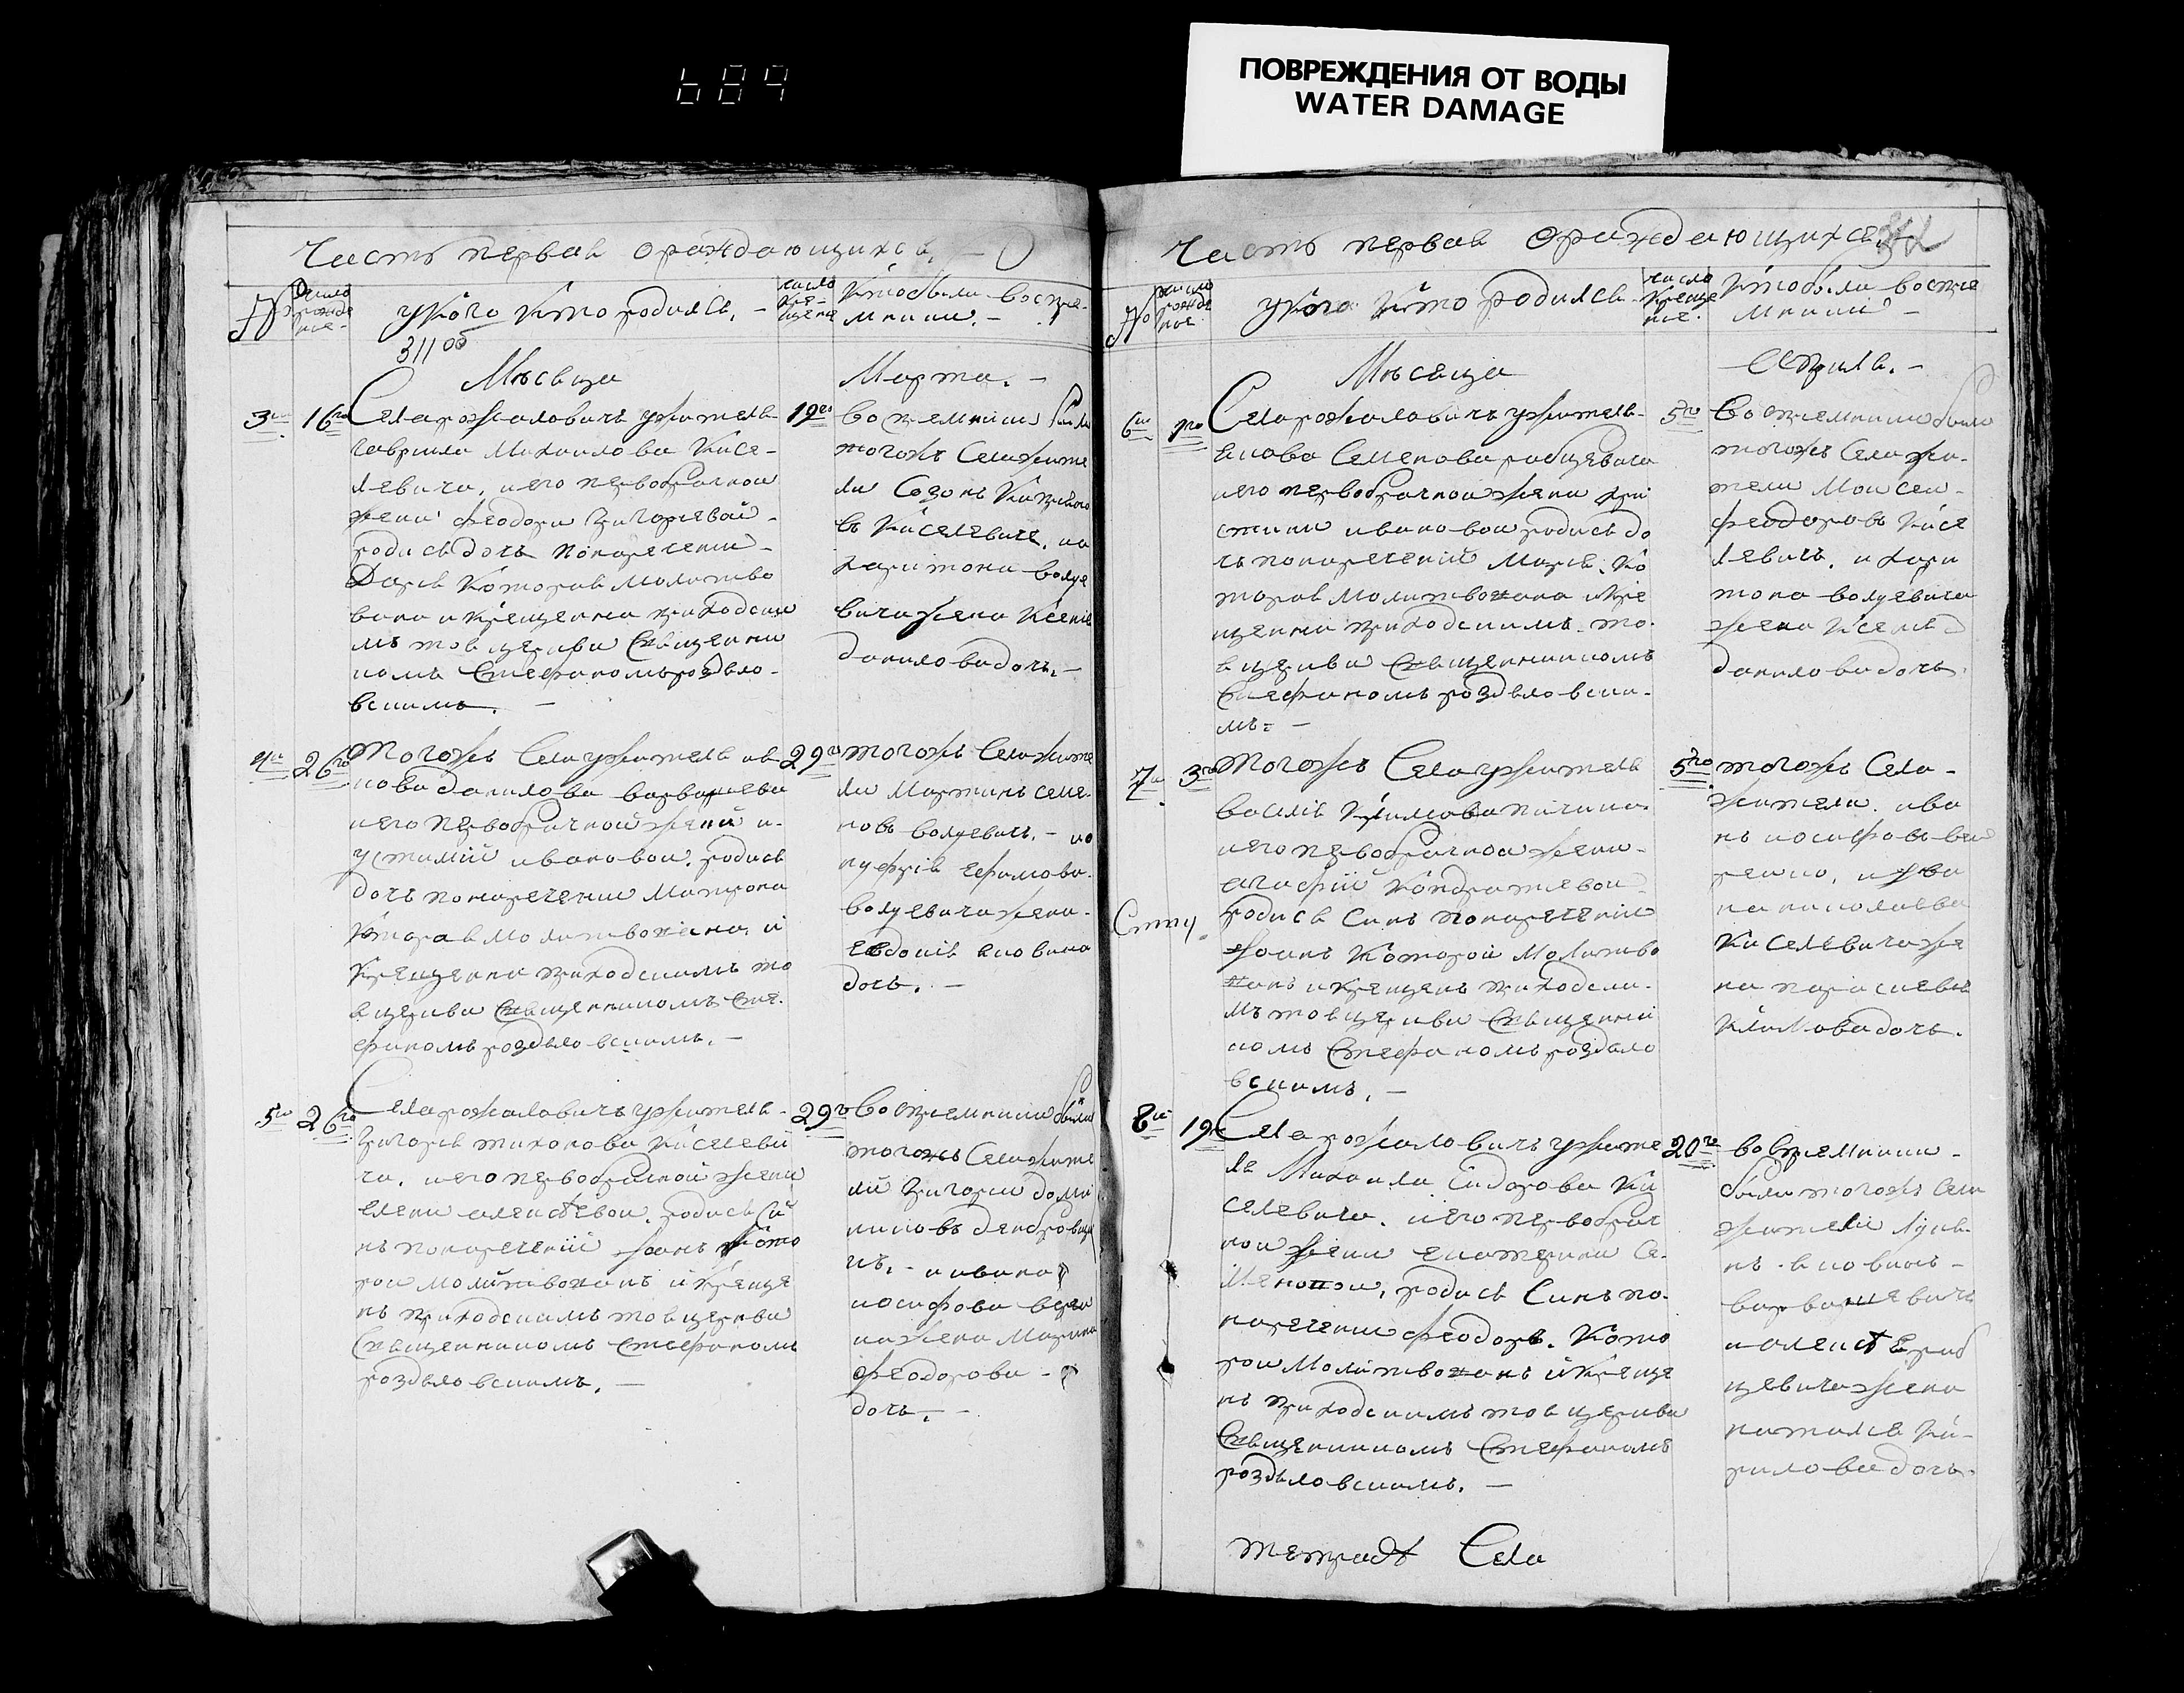 689
ПОВРЕЖДЕНИЯ ОТ ВОДЫ
WATER DAMAGE
Часть первая ораждающихся.
число рожде ние
укого кто родился.
число кре щение
кто были воспре
мники.
311 об
Мѣсяца
Марта.
3 16го
Села рожаловичъ ужителя
гавриила Михаилова Кисе-
левича, иего первобрачной
жени феодори григориевой
родися дочь понаречении
Дария которая молитво
вана икрещенна приходски
мъ тоя церкви священни
комъ Стефаномъ роздяло-
вскимъ.
19го
восприемники были
тогожъ Села жите
ли
въ Киселевичь, и
харитона волуе
вича жена Ксения
данилова дочь.
4 26го
Тогожъ Села ужителя ив
нова данилова
иего первобрачной жени и
устинии ивановой, родися
дочь понаречении Матрона
Которая молитвована, и
Крещенна приходскимъ то
я церкви священникомъ Сте
фаномъ роздяловскимъ.
29го
тогожъ Села жите
ли Мартинъ семе
новъ волуевичъ, ио
нуфрия Ефимова
волуевича жена
Евдокия яковлева
дочь.
5 26го
Села рожаловичъ ужителя
григория тихонова Киселеви
ча, иего первобрачной жени
елени алексѣевой, родися Си
нъ понаречении Иоанъ Кото
рои молитвованъ и Креще
нъ приходскимъ тоя церкви
Священникомъ Стефаномъ
роздяловскимъ.
29го
восприемники были
тогожъ Села жите
ли григории доми
никовъ
чъ. и ивана
иосифова
жена Марина
феодорова
дочь.
Часть первая Ораждающихся
число рожде ние
укого кто родился
число креще ние
кто были воспре
мники
Мѣсяца
Априля.
6 1го
Села рожаловичъ ужителя
Якова Семенова рабцевича
иего первобрачной жени хри
стини ивановой родися до
чь понаречении Мария, Ко
торая молитвована икре
щенна приходскимъ то
я церкви священникомъ
Стефаномъ роздяловски
мъ
5го
восприемники были
тогожъ Села жи
тели Моисеи
феодоровъ Кисе
левичъ, и хари
тона волуевича
жена Ксения
данилова дочь.
7 3го
Тогожъ Села ужителя
василия Климова
иего первобрачной жени
агафии Кондратиевой
родися Синъ понаречении
Иоанъ Которои молитво
ванъ икрещенъ приходски
мъ тоя церкви священни
комъ Стефаномъ роздяло
вскимъ.
5го
тогожъ Села
жители ива
нъ иосифовъ
и ива
на николаева
Киселевича же
на параскевия
Климова дочь.
8 19
Села рожаловичъ ужите
ля Михаила Сидорова Ки
селевича, иего первобрач
нои жени екатерини Се
меновои, родися Синъ по
наречении феодоръ, Кото
рои молитвованъ и Креще
нъ приходскимъ тоя церкви
Священникомъ Стефаномъ
роздяловскимъ.
20го
восприемники
были тогожъ Села
жители Луки
нъ яковлевъ
и алексѣя раб
цевича жена
наталия Ки
рилова дочь.
Села